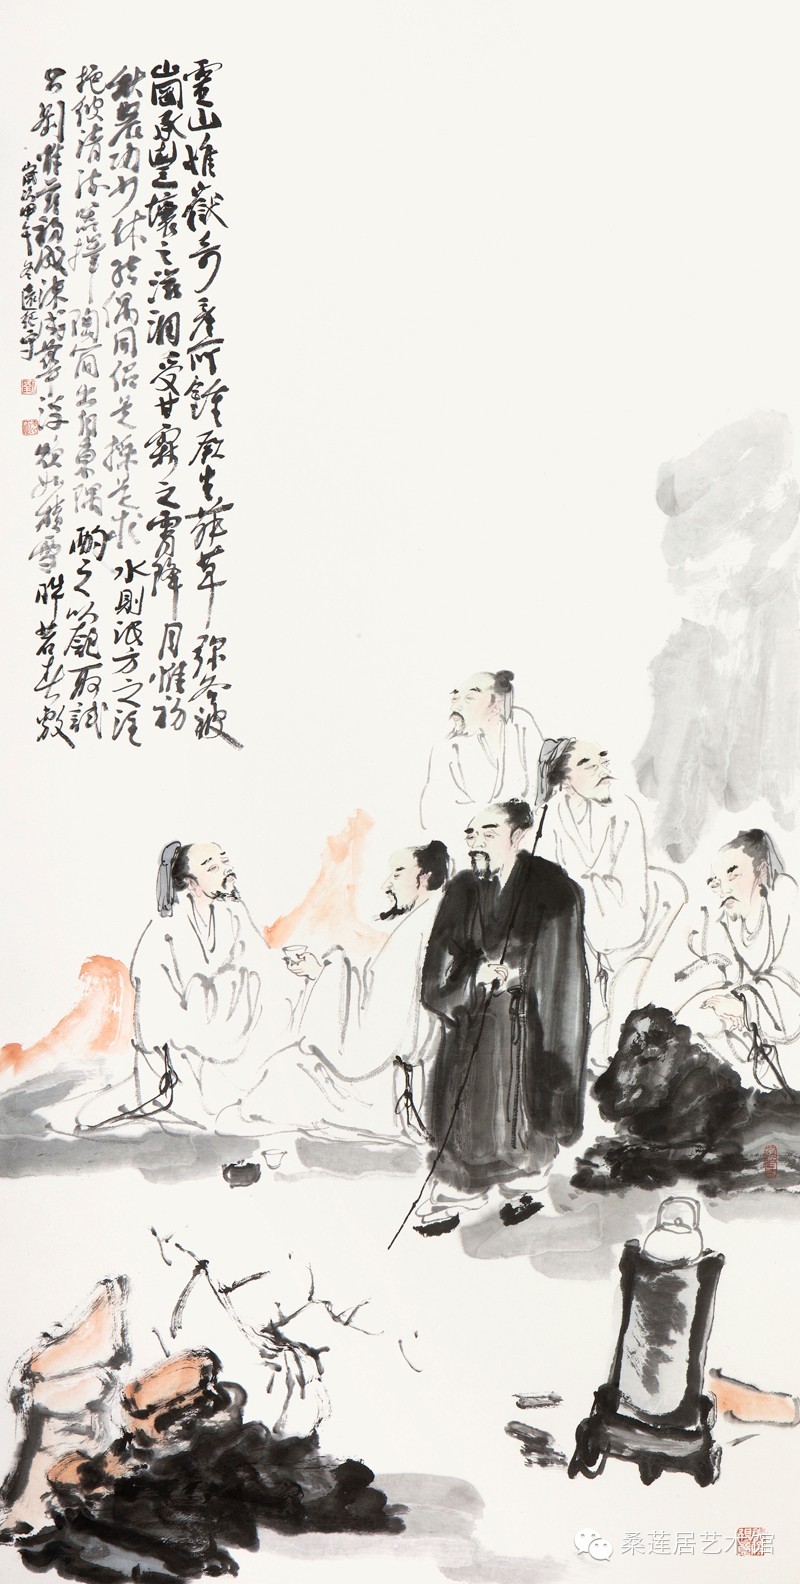 靈山惟嶽奇產所鍾厥生荈草彌谷被
崗承豐壤之滋潤受甘霖之霄降月惟初
秋農功少休結偶同侶是採是求水則岷方之注
挹彼清流器擇陶簡出自東隅酌之以匏取試
公劉惟茲初成沫成華浮煥如積雪曄若春敷
歲次甲午冬遠
桑莲居艺术馆